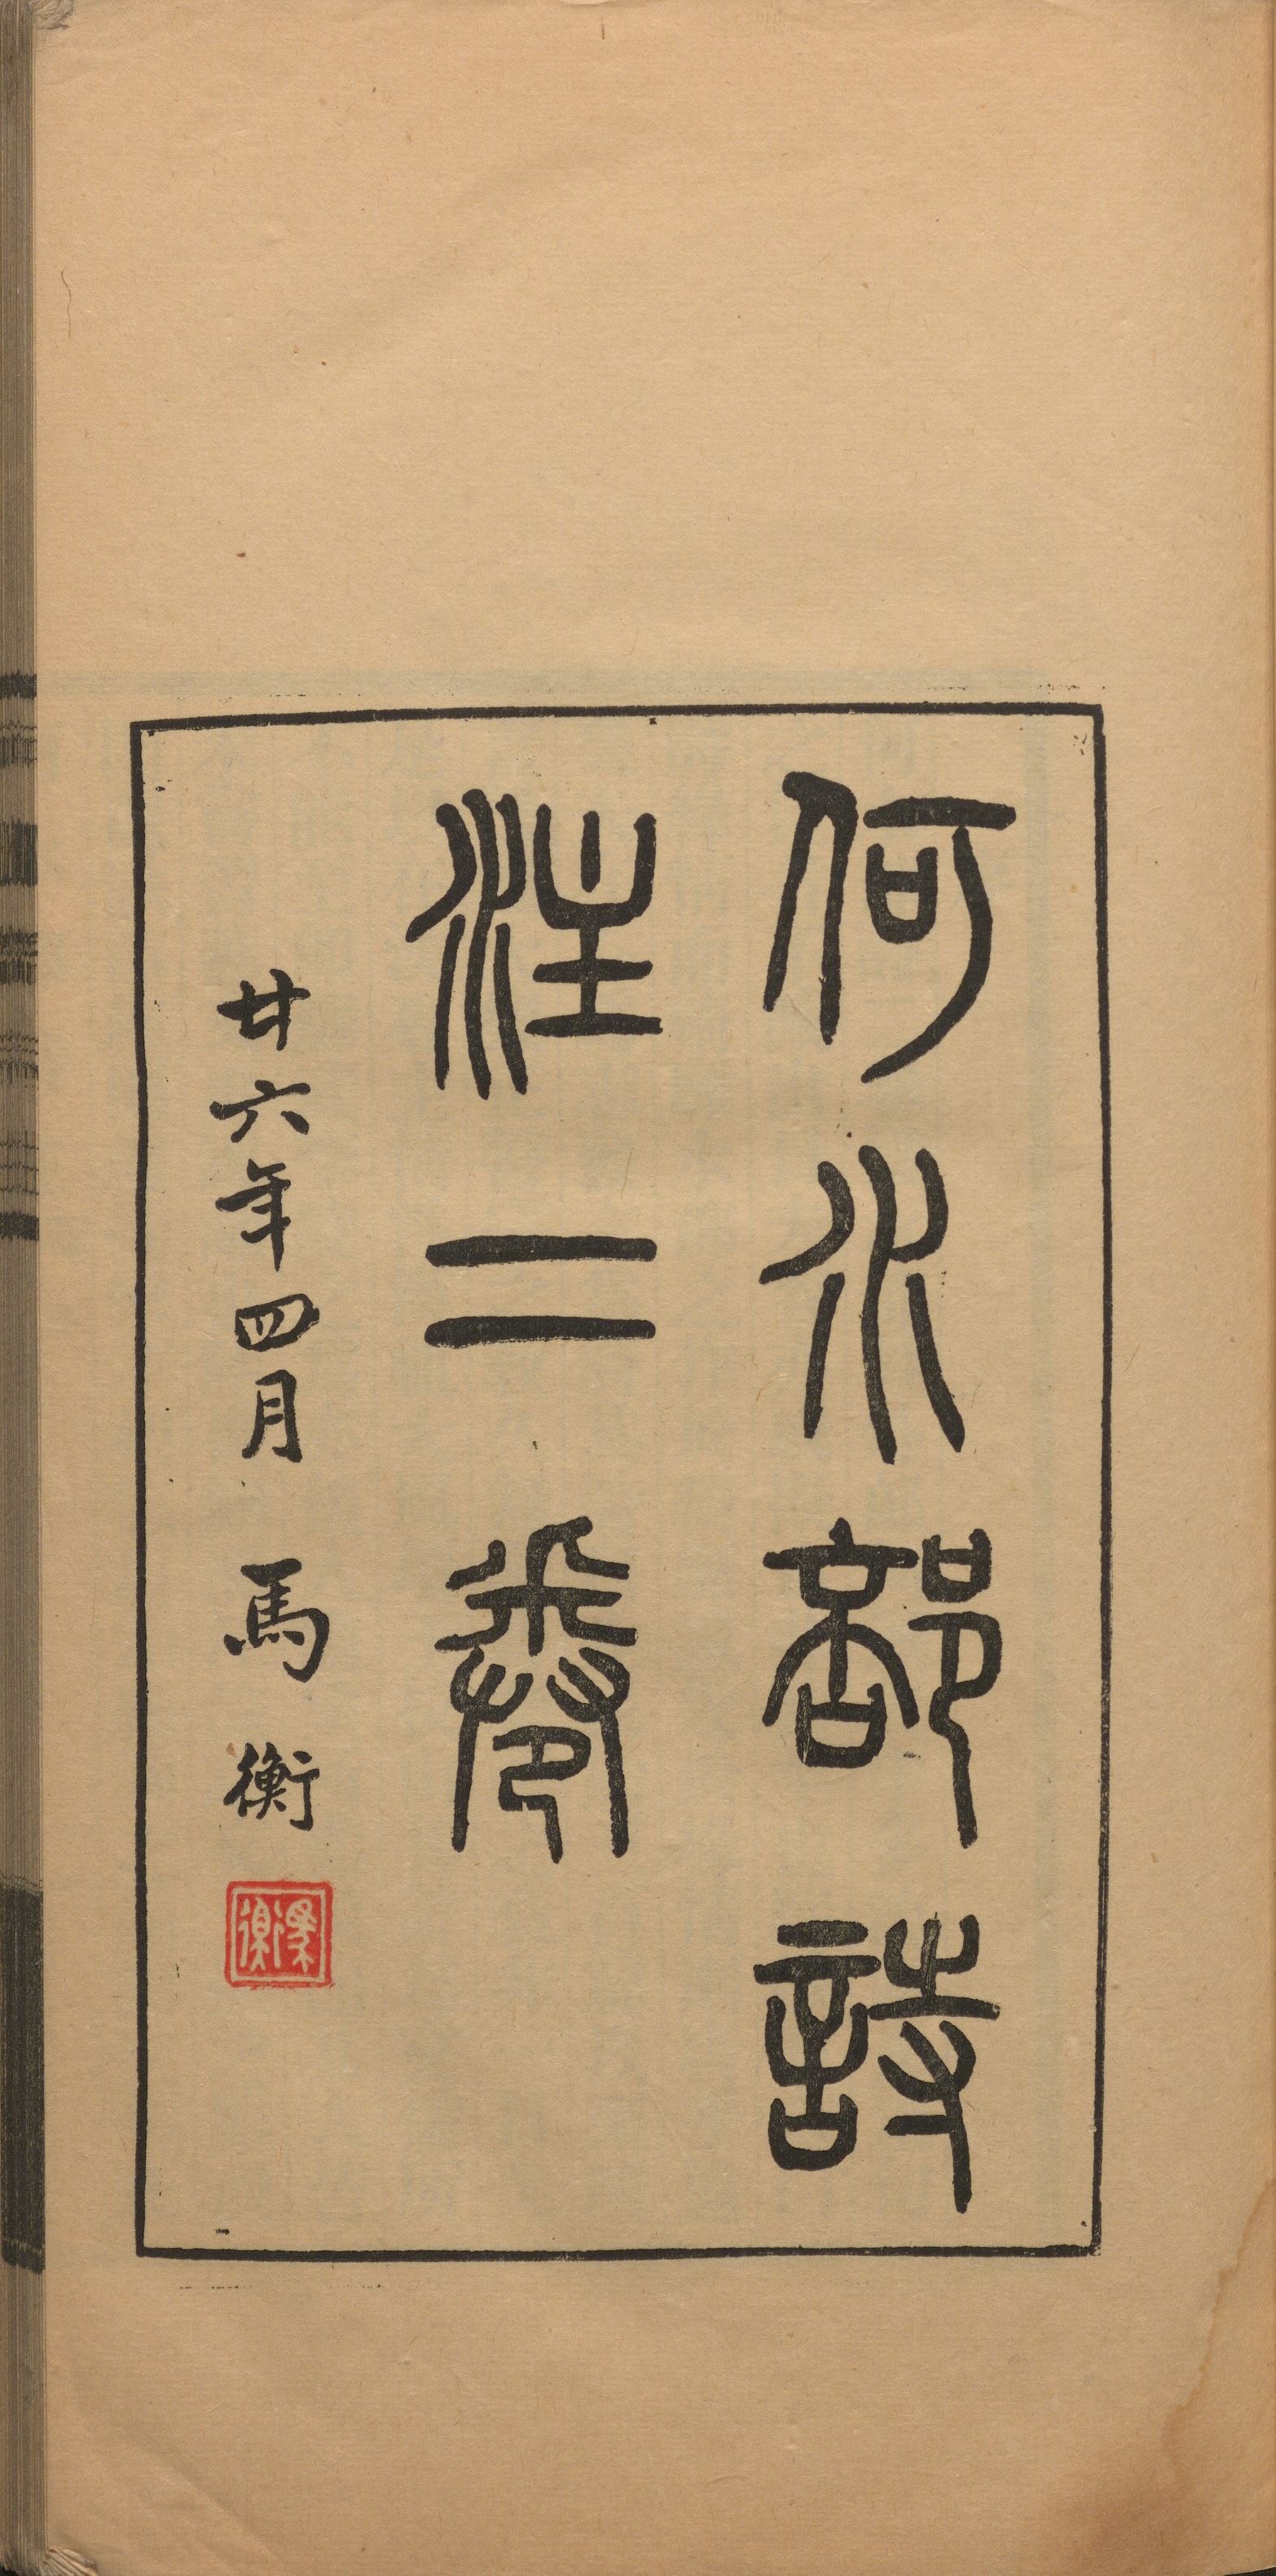 何水部詩
注二卷
廿六年四月 馬衡